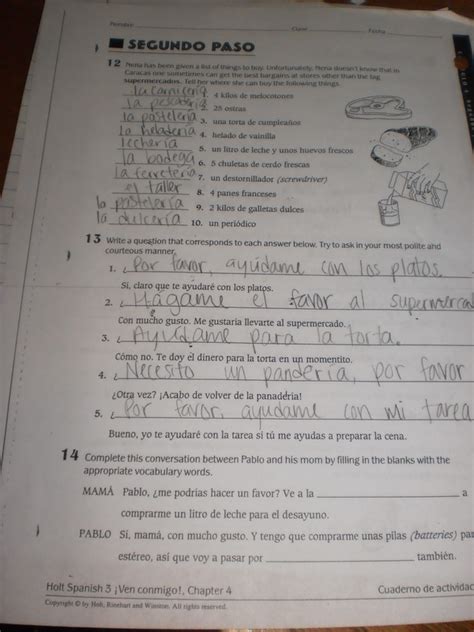 Nombre Clase Fecha
SEGUNDO PASO
12 Nena has been given a list of things to buy. Unfortunately, Nena doesn't know that in
Caracas one sometimes can get the best bargains at stores other than the big
supermercados. Tell her where she can buy the following things.
la carnicería 1. 4 kilos de melocotones
la pescadería 2. 25 ostras
la pastelería 3. una torta de cumpleaños
la heladería 4. helado de vainilla
lechería 5. un litro de leche y unos huevos frescos
la bodega 6. 5 chuletas de cerdo frescas
la ferretería 7. un destornillador (screwdriver)
el taller 8. 4 panes franceses
la pastelería 9. 2 kilos de galletas dulces
la dulcería 10. un periódico
13 Write a question that corresponds to each answer below. Try to ask in your most polite and
courteous manner.
1. ¿Por favor, ayúdame con los platos.
Sí, claro que te ayudaré con los platos.
2. ¿Hágame el favor al supermercad
Con mucho gusto. Me gustaría llevarte al supermercado.
3. ¿Ayúdame para la torta.
Cómo no. Te doy el dinero para la torta en un momentito.
4. ¿Necesito un pandería, por favor
¿Otra vez? ¡Acabo de volver de la panadería!
5. ¿Por favor, ayúdame con mi tarea
Bueno, yo te ayudaré con la tarea si tú me ayudas a preparar la cena.
14 Complete this conversation between Pablo and his mom by filling in the blanks with the
appropriate vocabulary words.
MAMÁ Pablo, ¿me podrías hacer un favor? Ve a la a
comprarme un litro de leche para el desayuno.
PABLO Sí, mamá, con mucho gusto. Y tengo que comprarme unas pilas (batteries) par
estéreo, así que voy a pasar por también.
Holt Spanish 3 ¡Ven conmigo!, Chapter 4 Cuaderno de actividac
Copyright © by Holt, Rinehart and Winston. All rights reserved.